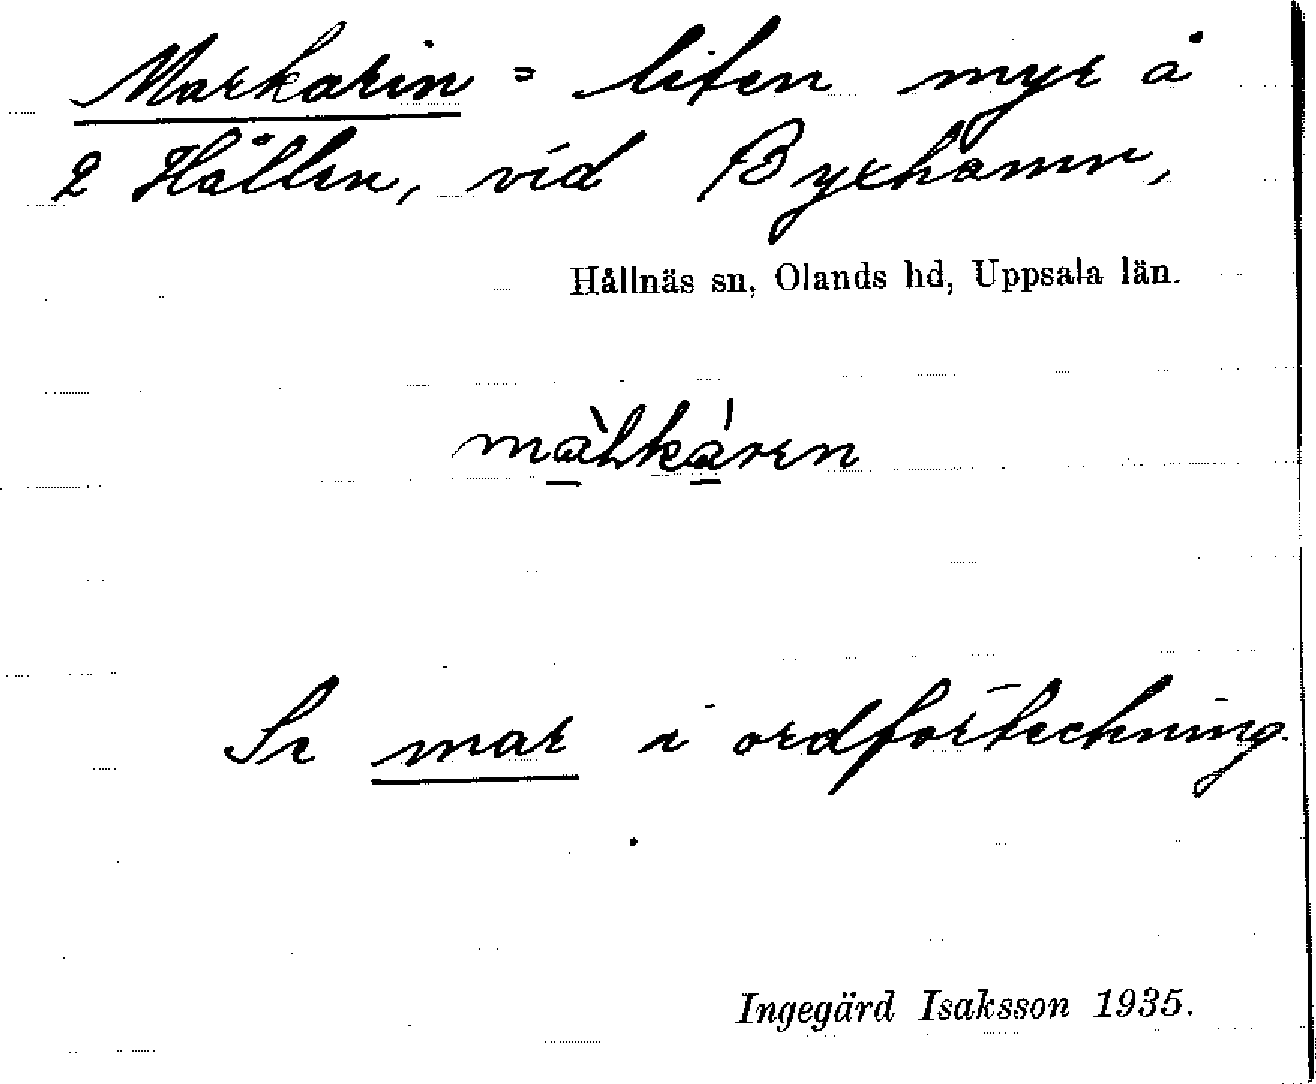 Markarin = liten myr å
2 Hållen, vid Byrhamn,
Hållnäs sn, Olands hd, Uppsala län.
Se mar i ordförteckning.
Ingegärd Isaksson 1935.